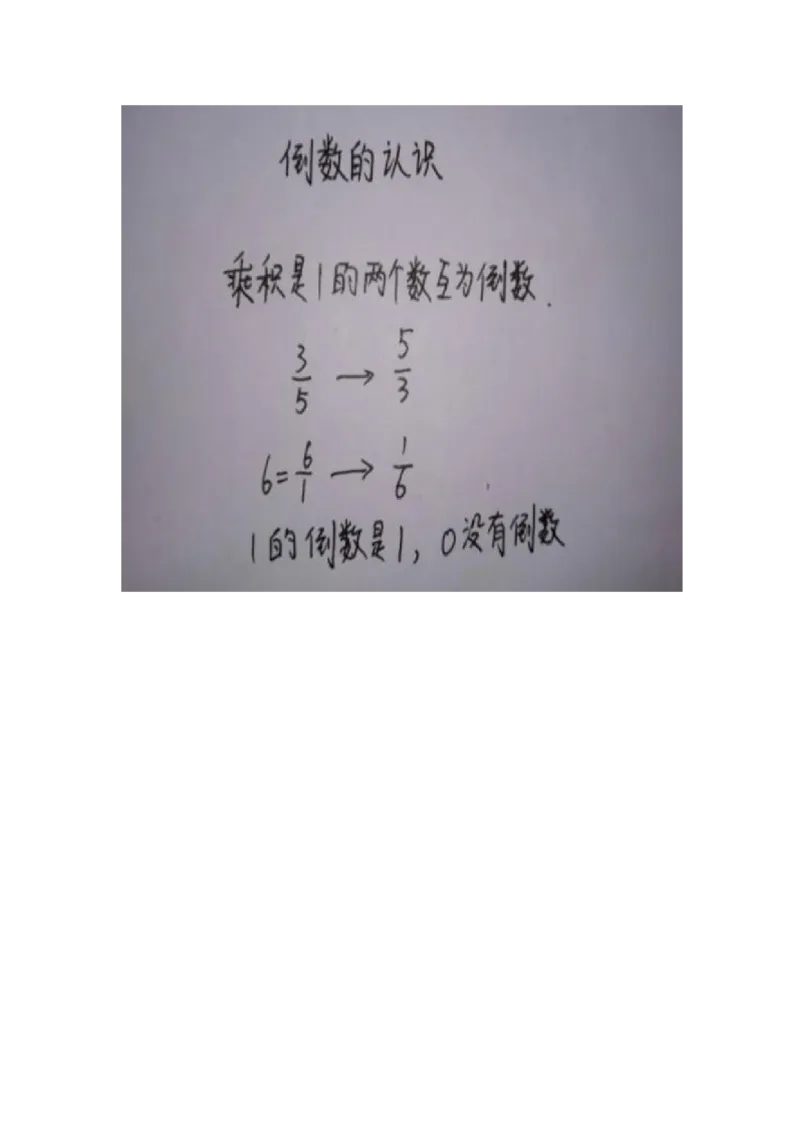 倒数的认识
乘积是1的两个数互为倒数.
3/5 → 5/3
6=6/1 → 1/6
1的倒数是1，0没有倒数